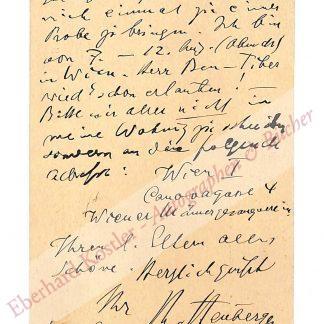 mich einmal zu einer
Probe zu bringen. Ich bin
von 7. – 12. Aug. (abends)
in Wien. Herr Ben-Tiber
wird's schon erlauben!
Bitte mir aber nicht in
meine Wohnung zu schreiben
sondern an die folgende
Adresse: Wien I
Canovagasse 4
Wiener Männergesangverein
Ihrer l. Eltern alles
Schöne. Herzlichst grüßt
Ihr
Eberhard Köstler - Autographen & Bücher